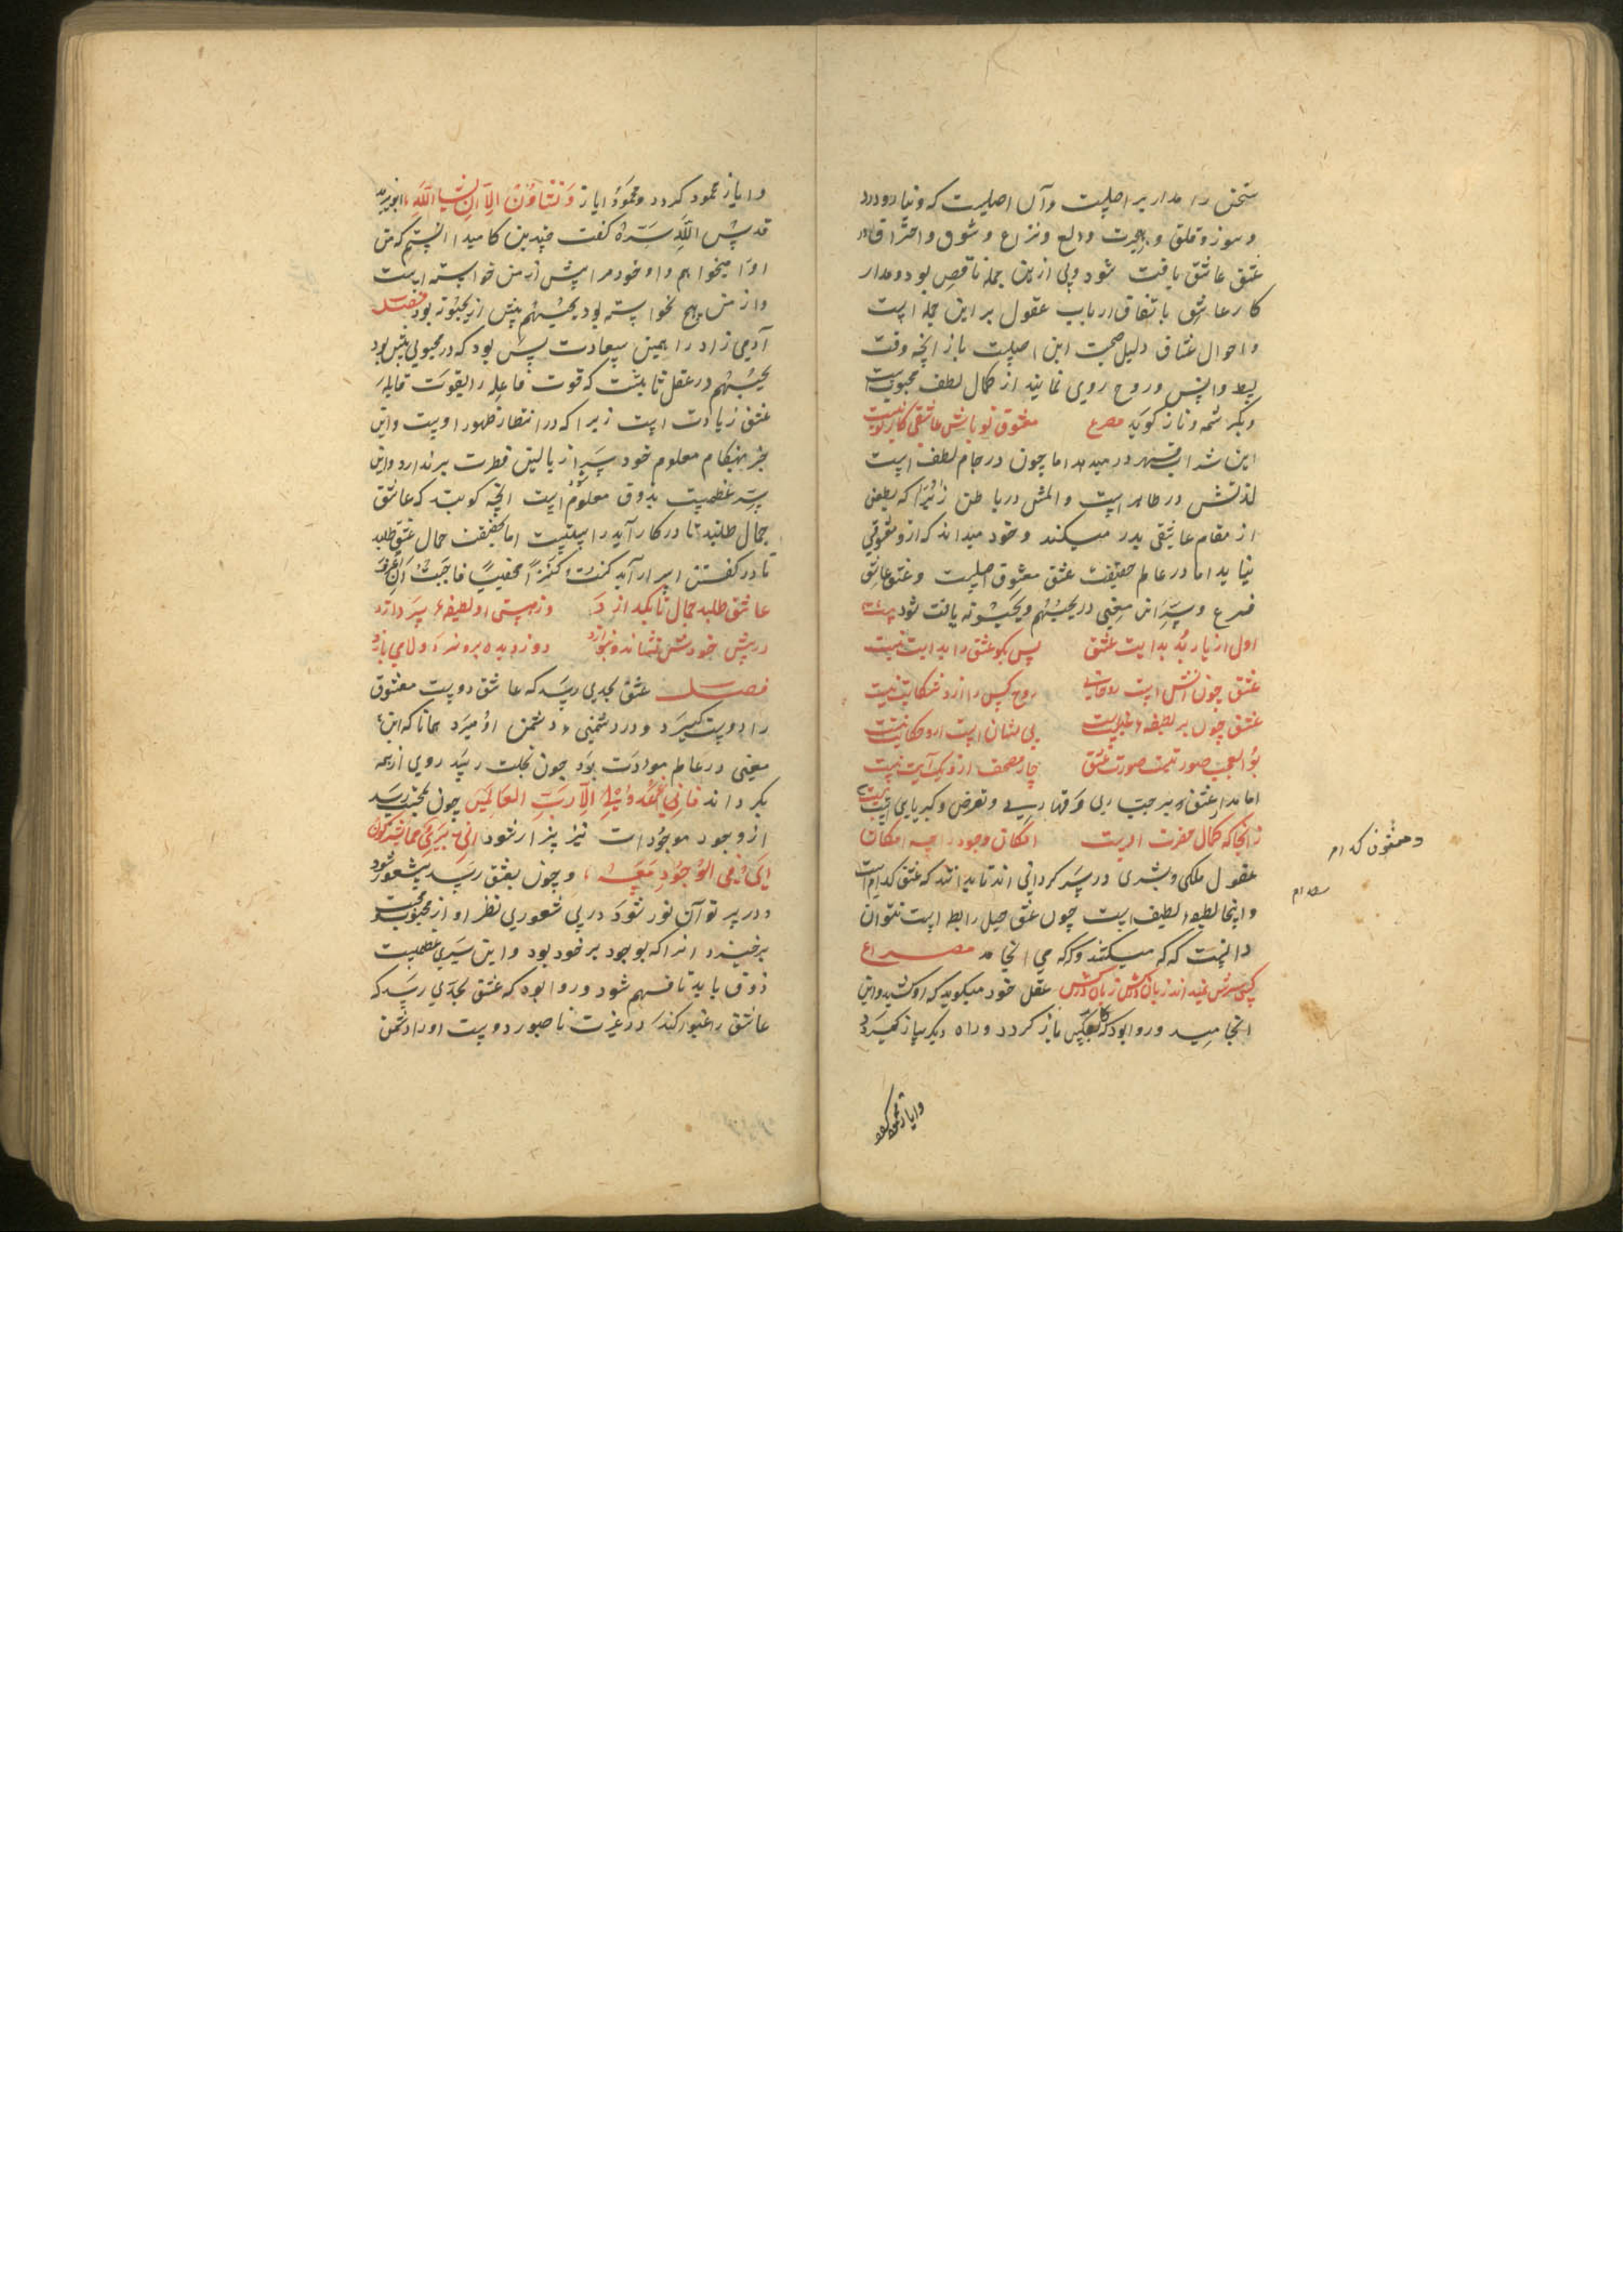 سخن را مدار بر اصلیست و آن اصلیست که و نیاز و درد
و سوز و قلق و حیرت و ولع و نزاع و شوق و احتراق در
عشق عاشق یافت شود ولی ازین جمله ناقص بود و مدار
کار عاشق باتفاق ارباب عقول بر این جمله است
و احوال عشاق دلیل صحت این اصلیست باز آنچه وقت
بسط و انس و روح روی نماید از کمال لطف محبوبست
و بکرشمه و ناز گوید مصرع معشوق تو باش عاشقی کار تو نیست
این شراب قهر در میدهد اما چون در جام لطف است
لذتش در ظاهر است و المش در باطن زیرا که بطعن
از مقام عاشقی بدر میکند و خود میداند که ازو معشوقی
نیاید اما در عالم حقیقت عشق معشوق اصلیست و عشق عاشق
فرع و سر این معنی در یحبهم و یحبونه یافت شود بیت
اول از یار بد بدایت عشق پس بگو عشق را بدایت نیست
عشق چون آتش است روحانی روح کس را ازو شکایت نیست
عشق چون بر لطیفه غیبیست بی نشان است ازو حکایت نیست
بوالعجب صورتیست صورت عشق چار مصحف ازو یک آیت نیست
اما بدایت عشق به بر جباری و قهاری و تعرض و کبریای است بیت
زانجا که کمال حضرت اوست امکان وجود را چه امکان
عقول ملکی و بشری در سرگردانی اند تا بدانند که عشق کدام است
و اینجا لطیفه لطیف است چون عشق حبل رابط است نتوان
دانست که که میکشد و که که می انجامد مصراع
عقل خود میگوید که او کشید و این
انجامید و روا بود که کار بعکس باز گردد و راه دیگر ساز گیرد
و معشوق کدام
وایاز محمود کردد
و ایاز محمود گردد و محمود ایاز وَتَشَاؤُنَ اِلَّا اَنْ یَشَاءَ اللّٰه ابویزید
قدس الله سره گفت چندین گاه میدانستم که من
او را میخواهم و او خود مرا پیش از من خواسته است
و از من هیچ نخواسته بود یحبهم پیش از یحبونه بود فصل
آدمی زاد را همین سعادت بس بود که در محبوبی پیش بود
یحبهم در عقل ثابتست که قوت فاعله را بقوت قابله
عشق زیادت است زیرا که در انتظار ظهور اوست و این
جز بهنگام معلوم خود سر از بالین فطرت برندارد و این
سر عظیمیست بذوق معلوم است آنچه گویند که عاشق
جمال طلبد تا در کار آید راستست اما بحقیقت جمال عشق طلبد
تا در گفتن اسرار آید کنت کنزا مخفیا فاحببت ان اعرف
عاشق طلبد جمال تا بگدازد وز هستی او لطیفه پردازد
در پیش خودش نشاند و بنوازد دوزد دیده بر وز و لامی بازد
فصل عشق بجدی رسد که عاشق دوست معشوق
را دوست گیرد و در دشمنی دشمن او میرد همانا که این
معنی در عالم مودت بود چون بخلت رسد روی از همه
بگرداند فَاِنَّهُمْ عَدُوٌّ لِی اِلَّا رَبَّ العَالَمِینَ چون بمحبت رسد
از وجود موجودات نیز بیزار شود اِنِّی بَرِیءٌ مِمَّا تُشْرِکُونَ
اَیْ فِی الوُجُودِ مَعَهُ و چون بعشق رسد بیشعور شود
و در پرتو آن نور شود در بی شعوری نظر او از محبوب و محبت
برخیزد انرا که بوجود بر خود بود و این سری عظیمیست
ذوق باید تا فهم شود و روا بود که عشق بجدی رسد که
عاشق را غیور کند در غیرت ناصبور دوست او را دشمن